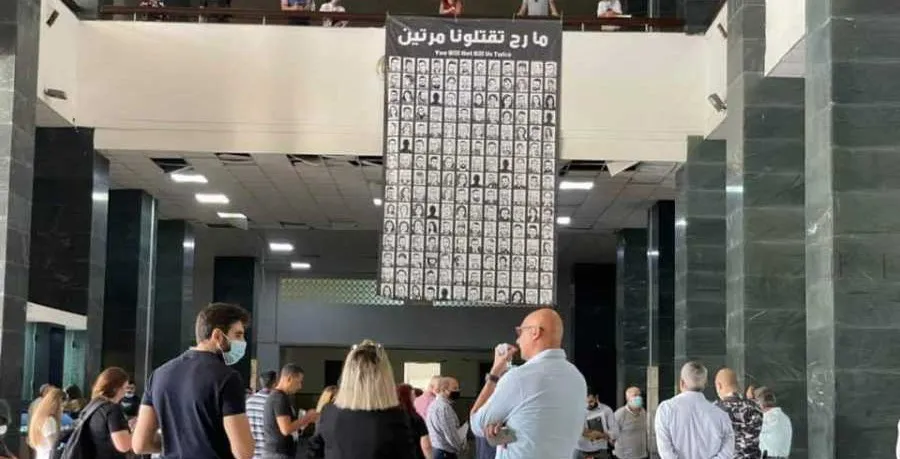 ما رح تقتلونا مرتين
You Will Not Kill Us Twice